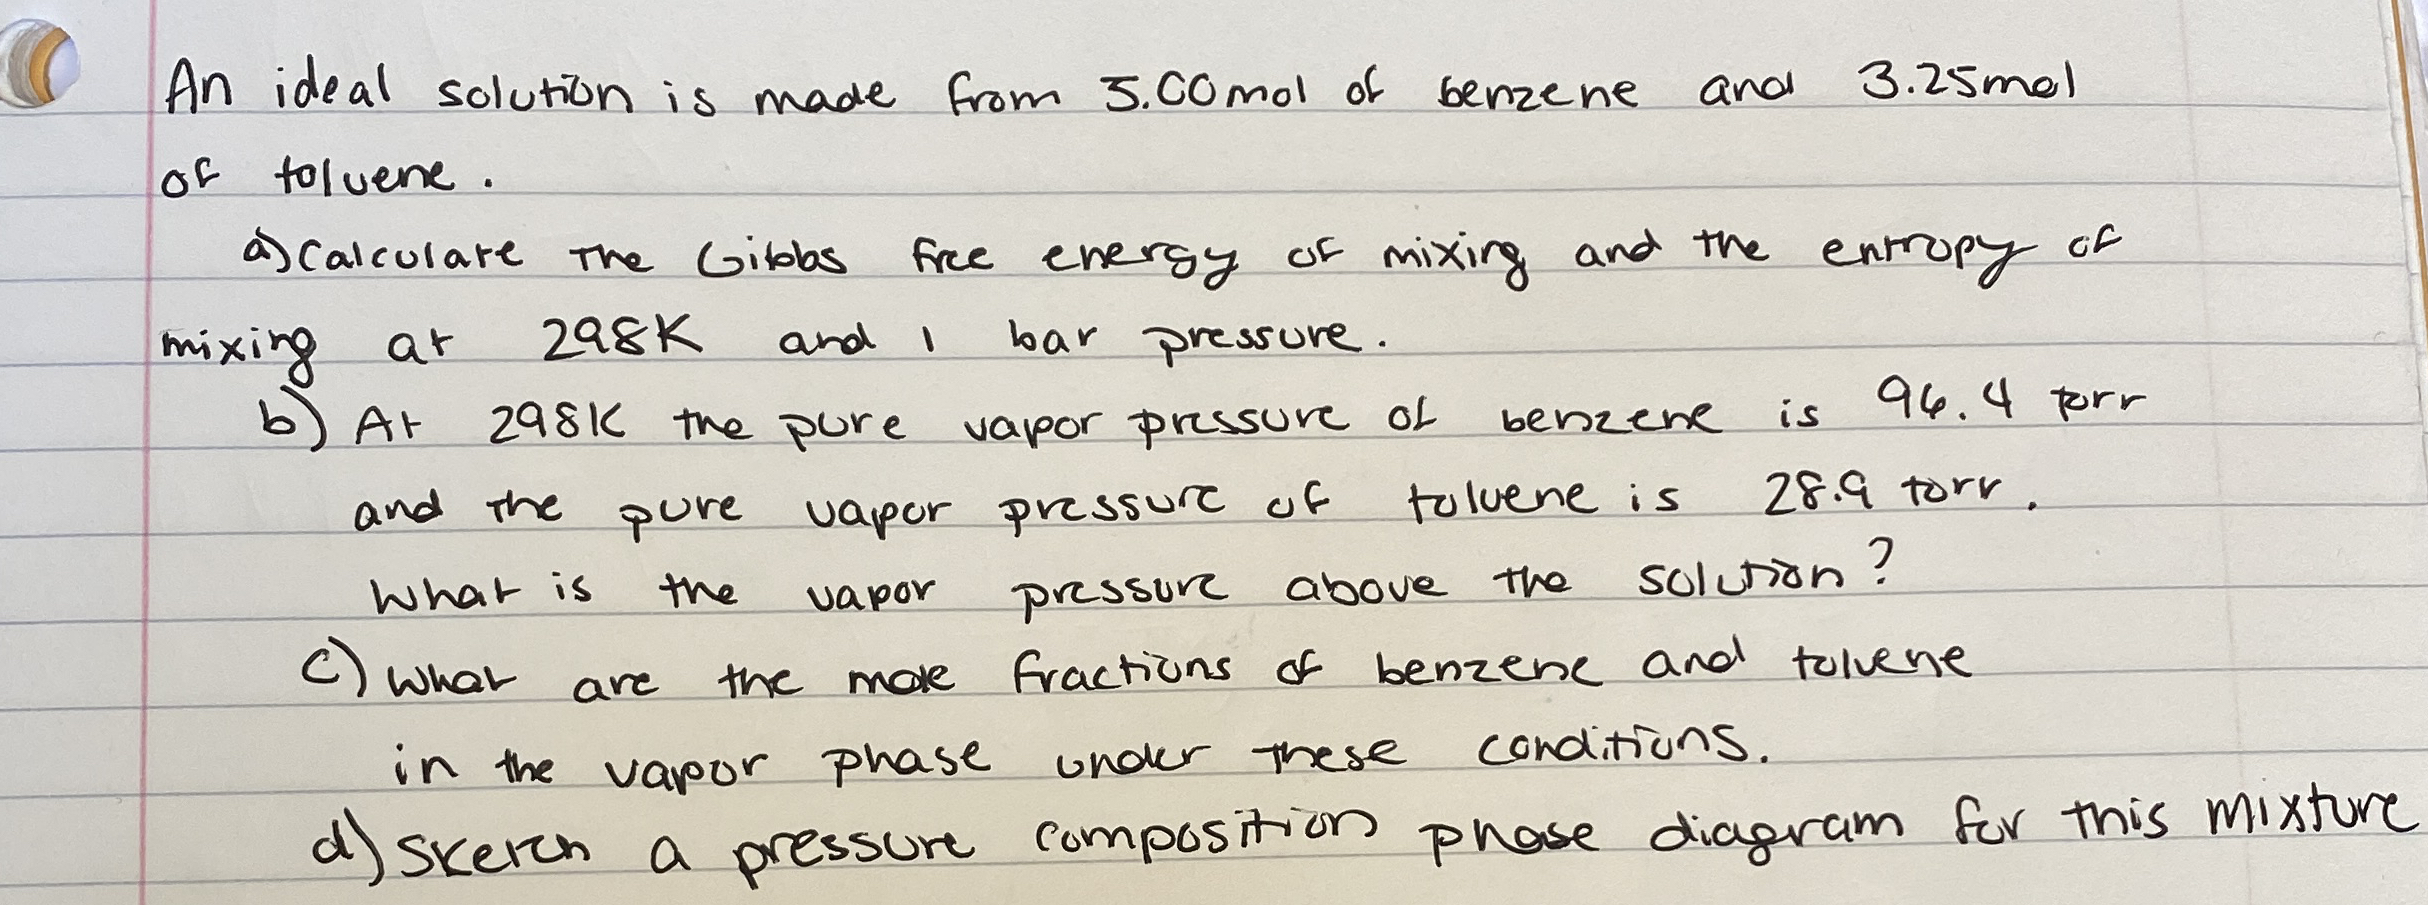 An ideal solution is made from 5.00mol of benzene and 3.25mol
of toluene.
a) Calculate the Gibbs free energy of mixing and the entropy of
mixing at 298K and 1 bar pressure.
b) At 298K the pure vapor pressure of benzene is 96.4 torr
and the pure vapor pressure of toluene is 28.9 torr.
What is the vapor pressure above the solution?
c) What are the mole fractions of benzene and toluene
in the vapor phase under these conditions.
d) Sketch a pressure composition phase diagram for this mixture